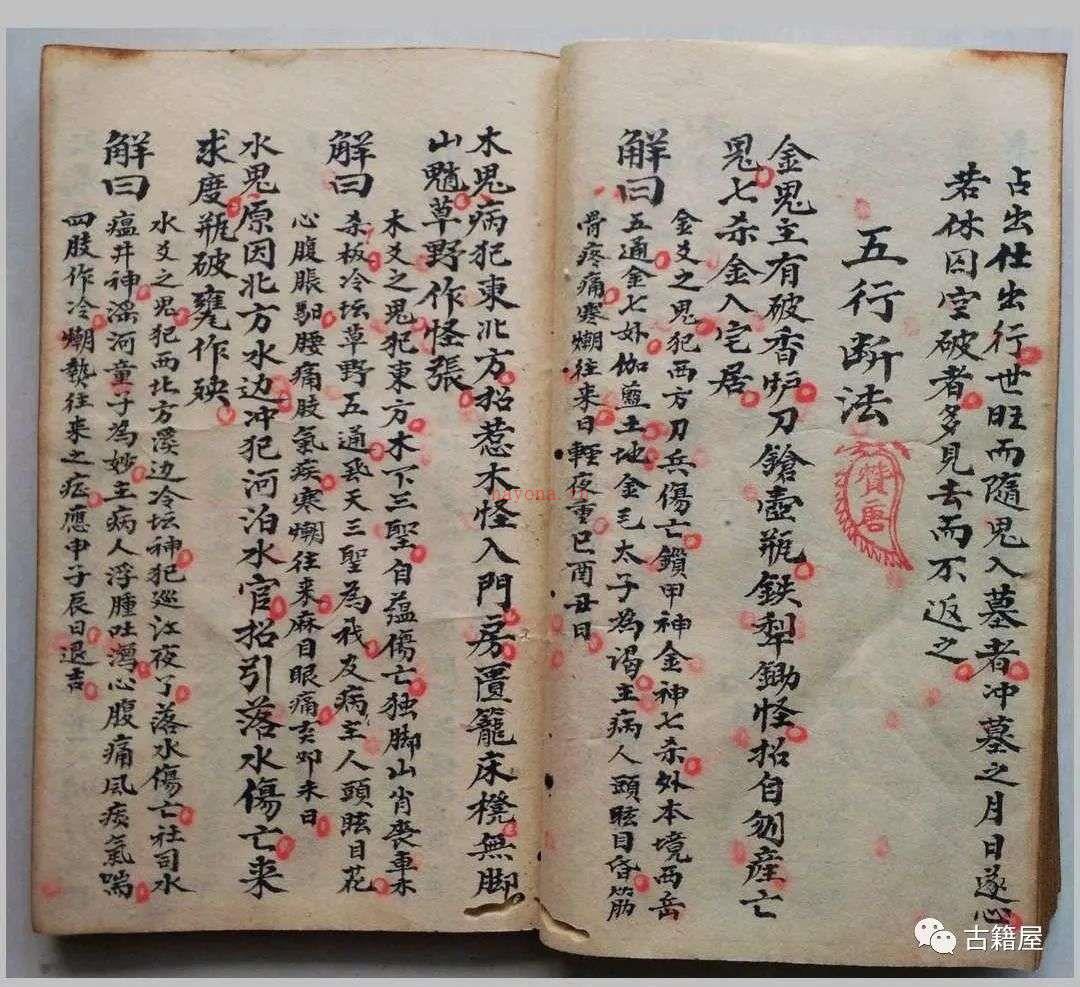 占出仕出行世旺而隨鬼入墓者冲墓之月日遂心
若休囚空破者多見去而不返之
五行断法
金鬼主有破香炉刀鎗壺瓶鉄犁鋤怪招自刎産亡
鬼七杀金入宅居
解曰
金爻之鬼犯西方刀兵傷亡鎖甲神金神七杀外本境西岳
五通金七妳伽藍土地金毛太子為谒主病人頭眩目昏筋
骨疼痛寒㶧往来日輕夜重巳酉丑日
木鬼病犯東北方招惹木怪入門房匱籠床櫈無脚
山魈草野作怪張
解曰
木爻之鬼犯東方木下三聖自蕴傷亡独脚山肖喪車木
杀板冷坛草野五通丧天三聖為祸及病主人頭眩目花
心腹脹腰痛肢氣疾寒㶧往来麻目眼痛亥卯未日
水鬼原因北方水边冲犯河泊水官招引落水傷亡来
求度瓶破甕作殃
解曰
水爻之鬼犯西北方溪边冷坛神犯巡江夜了落水傷亡社司水
瘟井神滛河童子為妙主病人浮腫吐瀉心腹痛风痰氣喘
四肢作冷㶧熱往来之症應申子辰日退吉
贊唐
hayona.cn
古籍屋